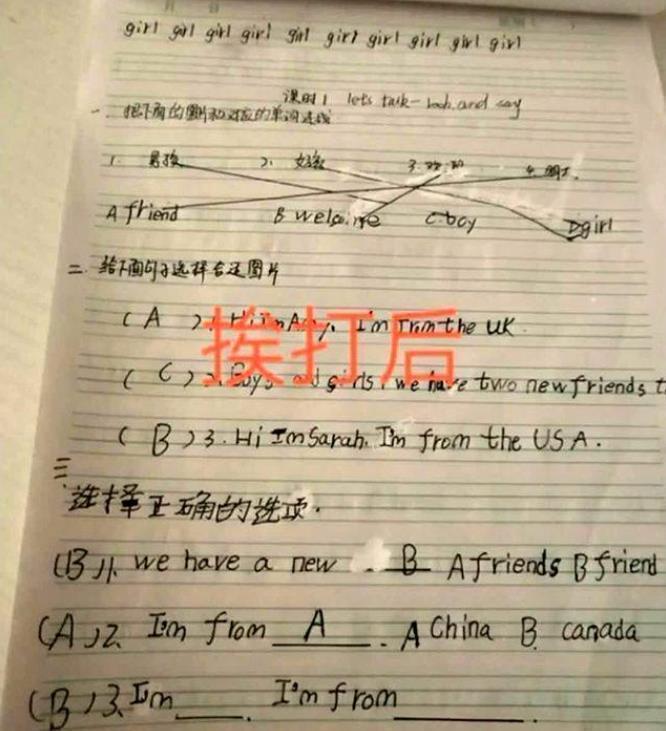 girl girl girl girl girl girl girl girl girl girl
课时1 let's talk-look and say
一. 把下面的图片和对应的单词连线
1. 男孩 2. 女孩 3. 欢迎 4. 朋友.
A friend B welcome C boy D girl
二. 给下面句子选择合适图片
(A) Hi I'm Amy. I'm from the UK.
挨打后
(C) 2. Boys and girls, we have two new friends t
(B) 3. Hi I'm Sarah. I'm from the USA.
三
选择正确的选项.
(B) 1. we have a new B A friends B friend
(A) 2. I'm from A . A China B. canada
(B) 3. I'm ___. I'm from ___